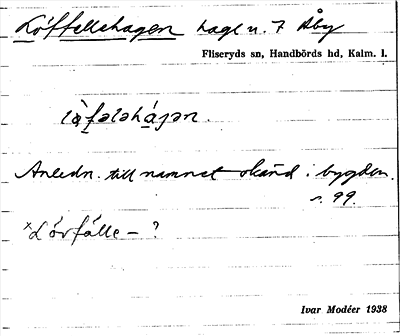 Löffellehagen hagl u. 7 Åby
Fliseryds sn, Handbörds hd, Kalm. l.
lò̀fələhájən.
Anledn. till namnet okänd i bygden.
s. 99.
ˣLövfälle- ?
Ivar Modéer 1938